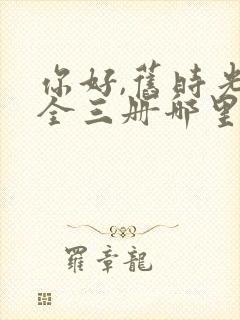 你好,舊時光
全三册哪里
羅章龍